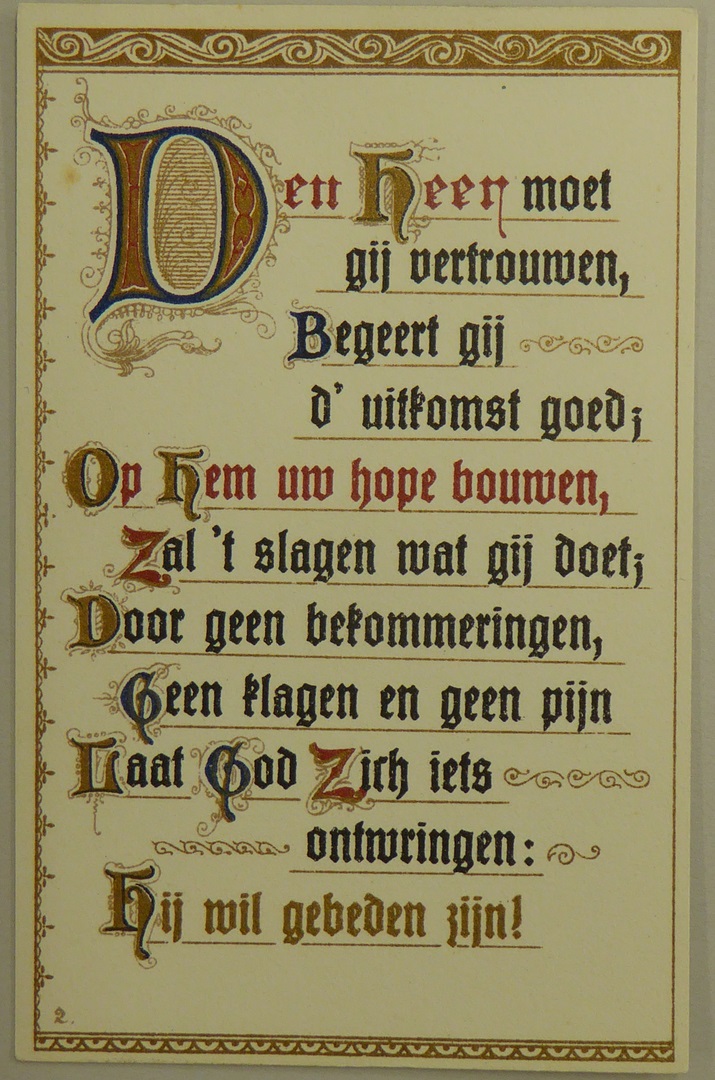 Den Heer moet
gij vertrouwen,
Begeert gij
d' uitkomst goed;
Op Hem uw hope bouwen,
Zal 't slagen wat gij doet;
Door geen bekommeringen,
Geen klagen en geen pijn
Laat God Zich iets
ontwringen:
Hij wil gebeden zijn!
2.